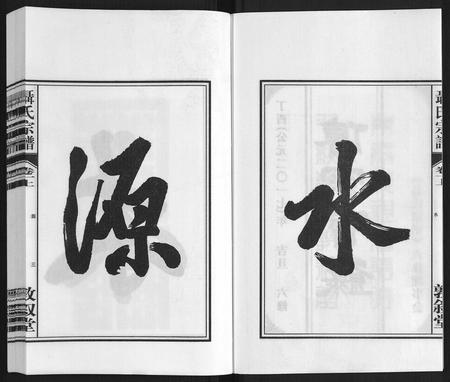 水
源
聶氏宗譜
卷一上
敦敘堂
丁酉(公元二〇一七年 吉旦 六修
聶氏宗譜
卷一上
敦敘堂